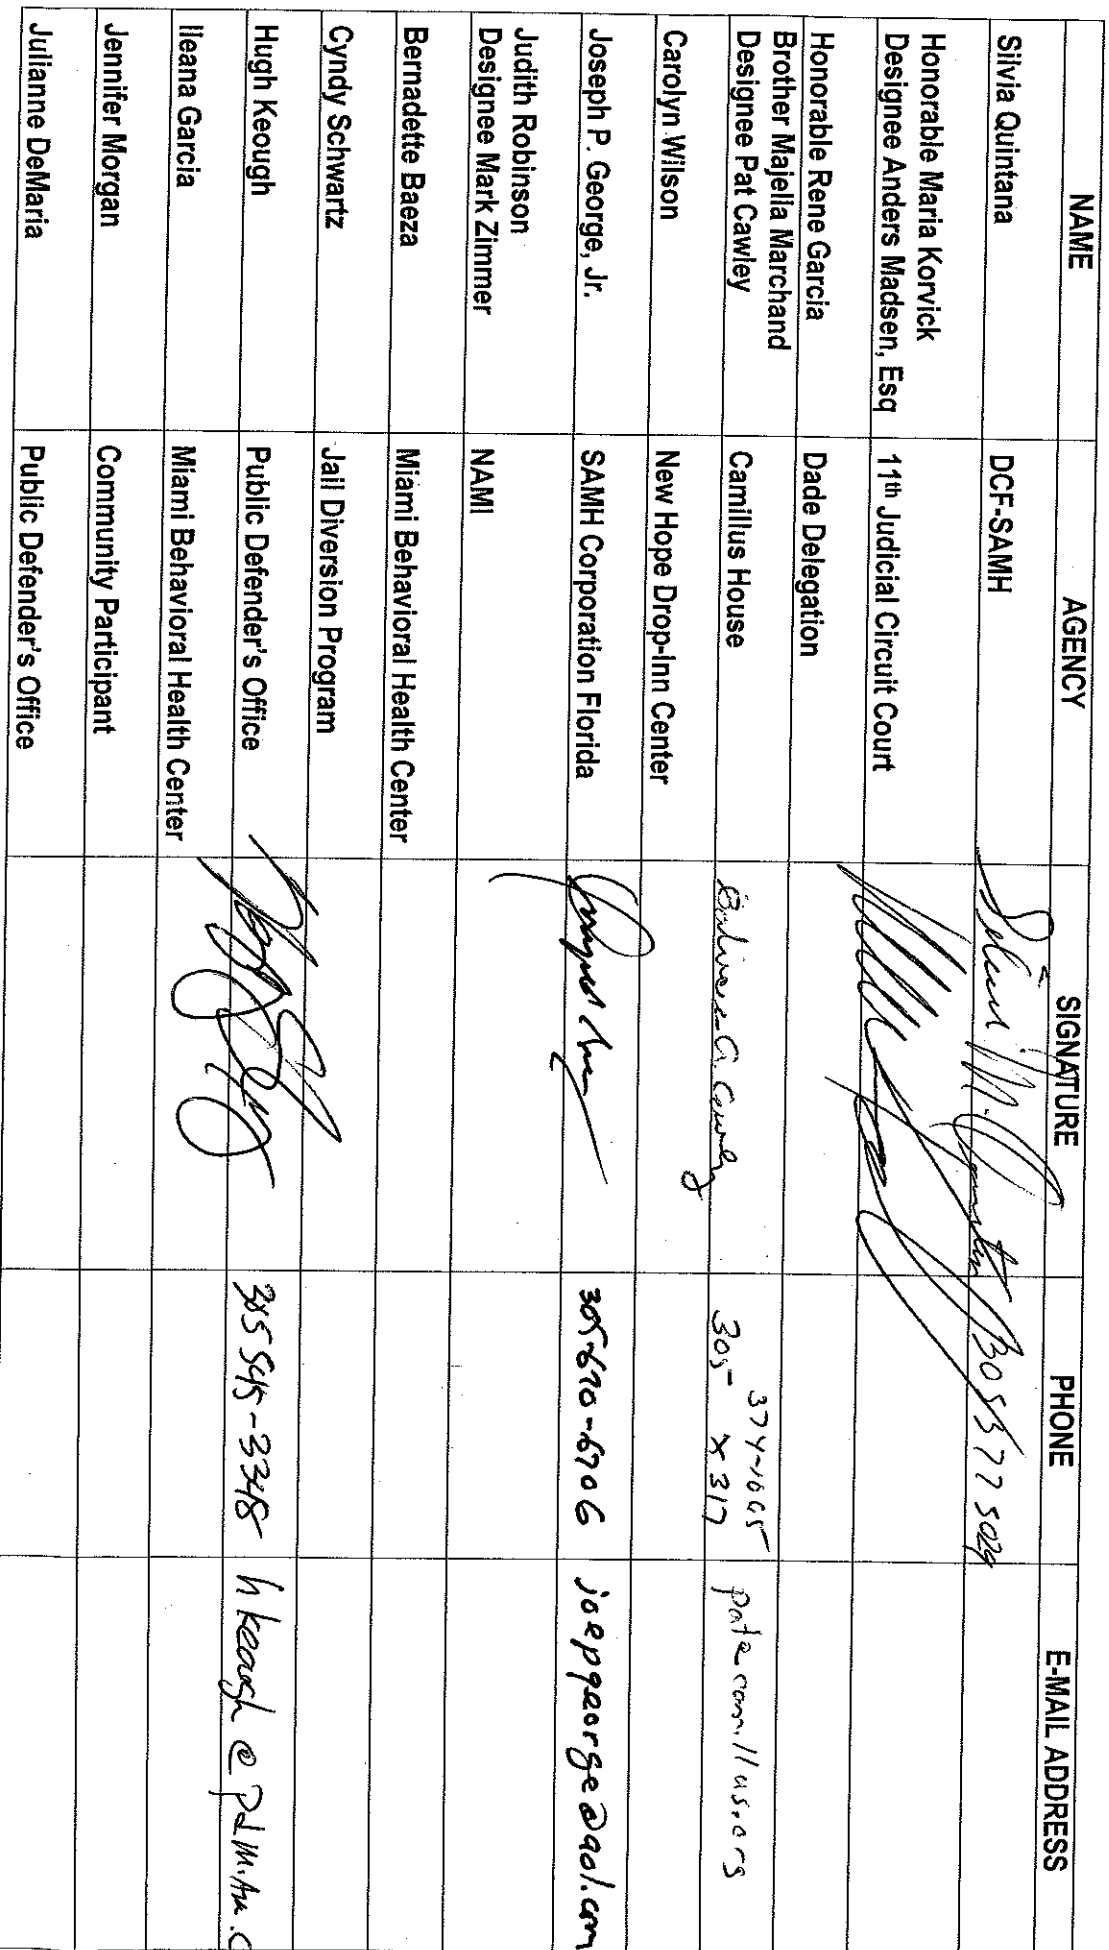 NAME AGENCY SIGNATURE PHONE E-MAIL ADDRESS
Silvia Quintana DCF-SAMH 305 377 5029
Honorable Maria Korvick
Designee Anders Madsen, Esq 11th Judicial Circuit Court
Honorable Rene Garcia Dade Delegation
Brother Majella Marchand
Designee Pat Cawley Camillus House 374-1065
305- x 317 pat@camillus.org
Carolyn Wilson New Hope Drop-Inn Center
Joseph P. George, Jr. SAMH Corporation Florida 305-670-6706 joepgeorge@aol.com
Judith Robinson
Designee Mark Zimmer NAMI
Bernadette Baeza Miami Behavioral Health Center
Cyndy Schwartz Jail Diversion Program
Hugh Keough Public Defender's Office 305 545-3348 hkeough@pdmiami.c
Ileana Garcia Miami Behavioral Health Center
Jennifer Morgan Community Participant
Julianne DeMaria Public Defender's Office